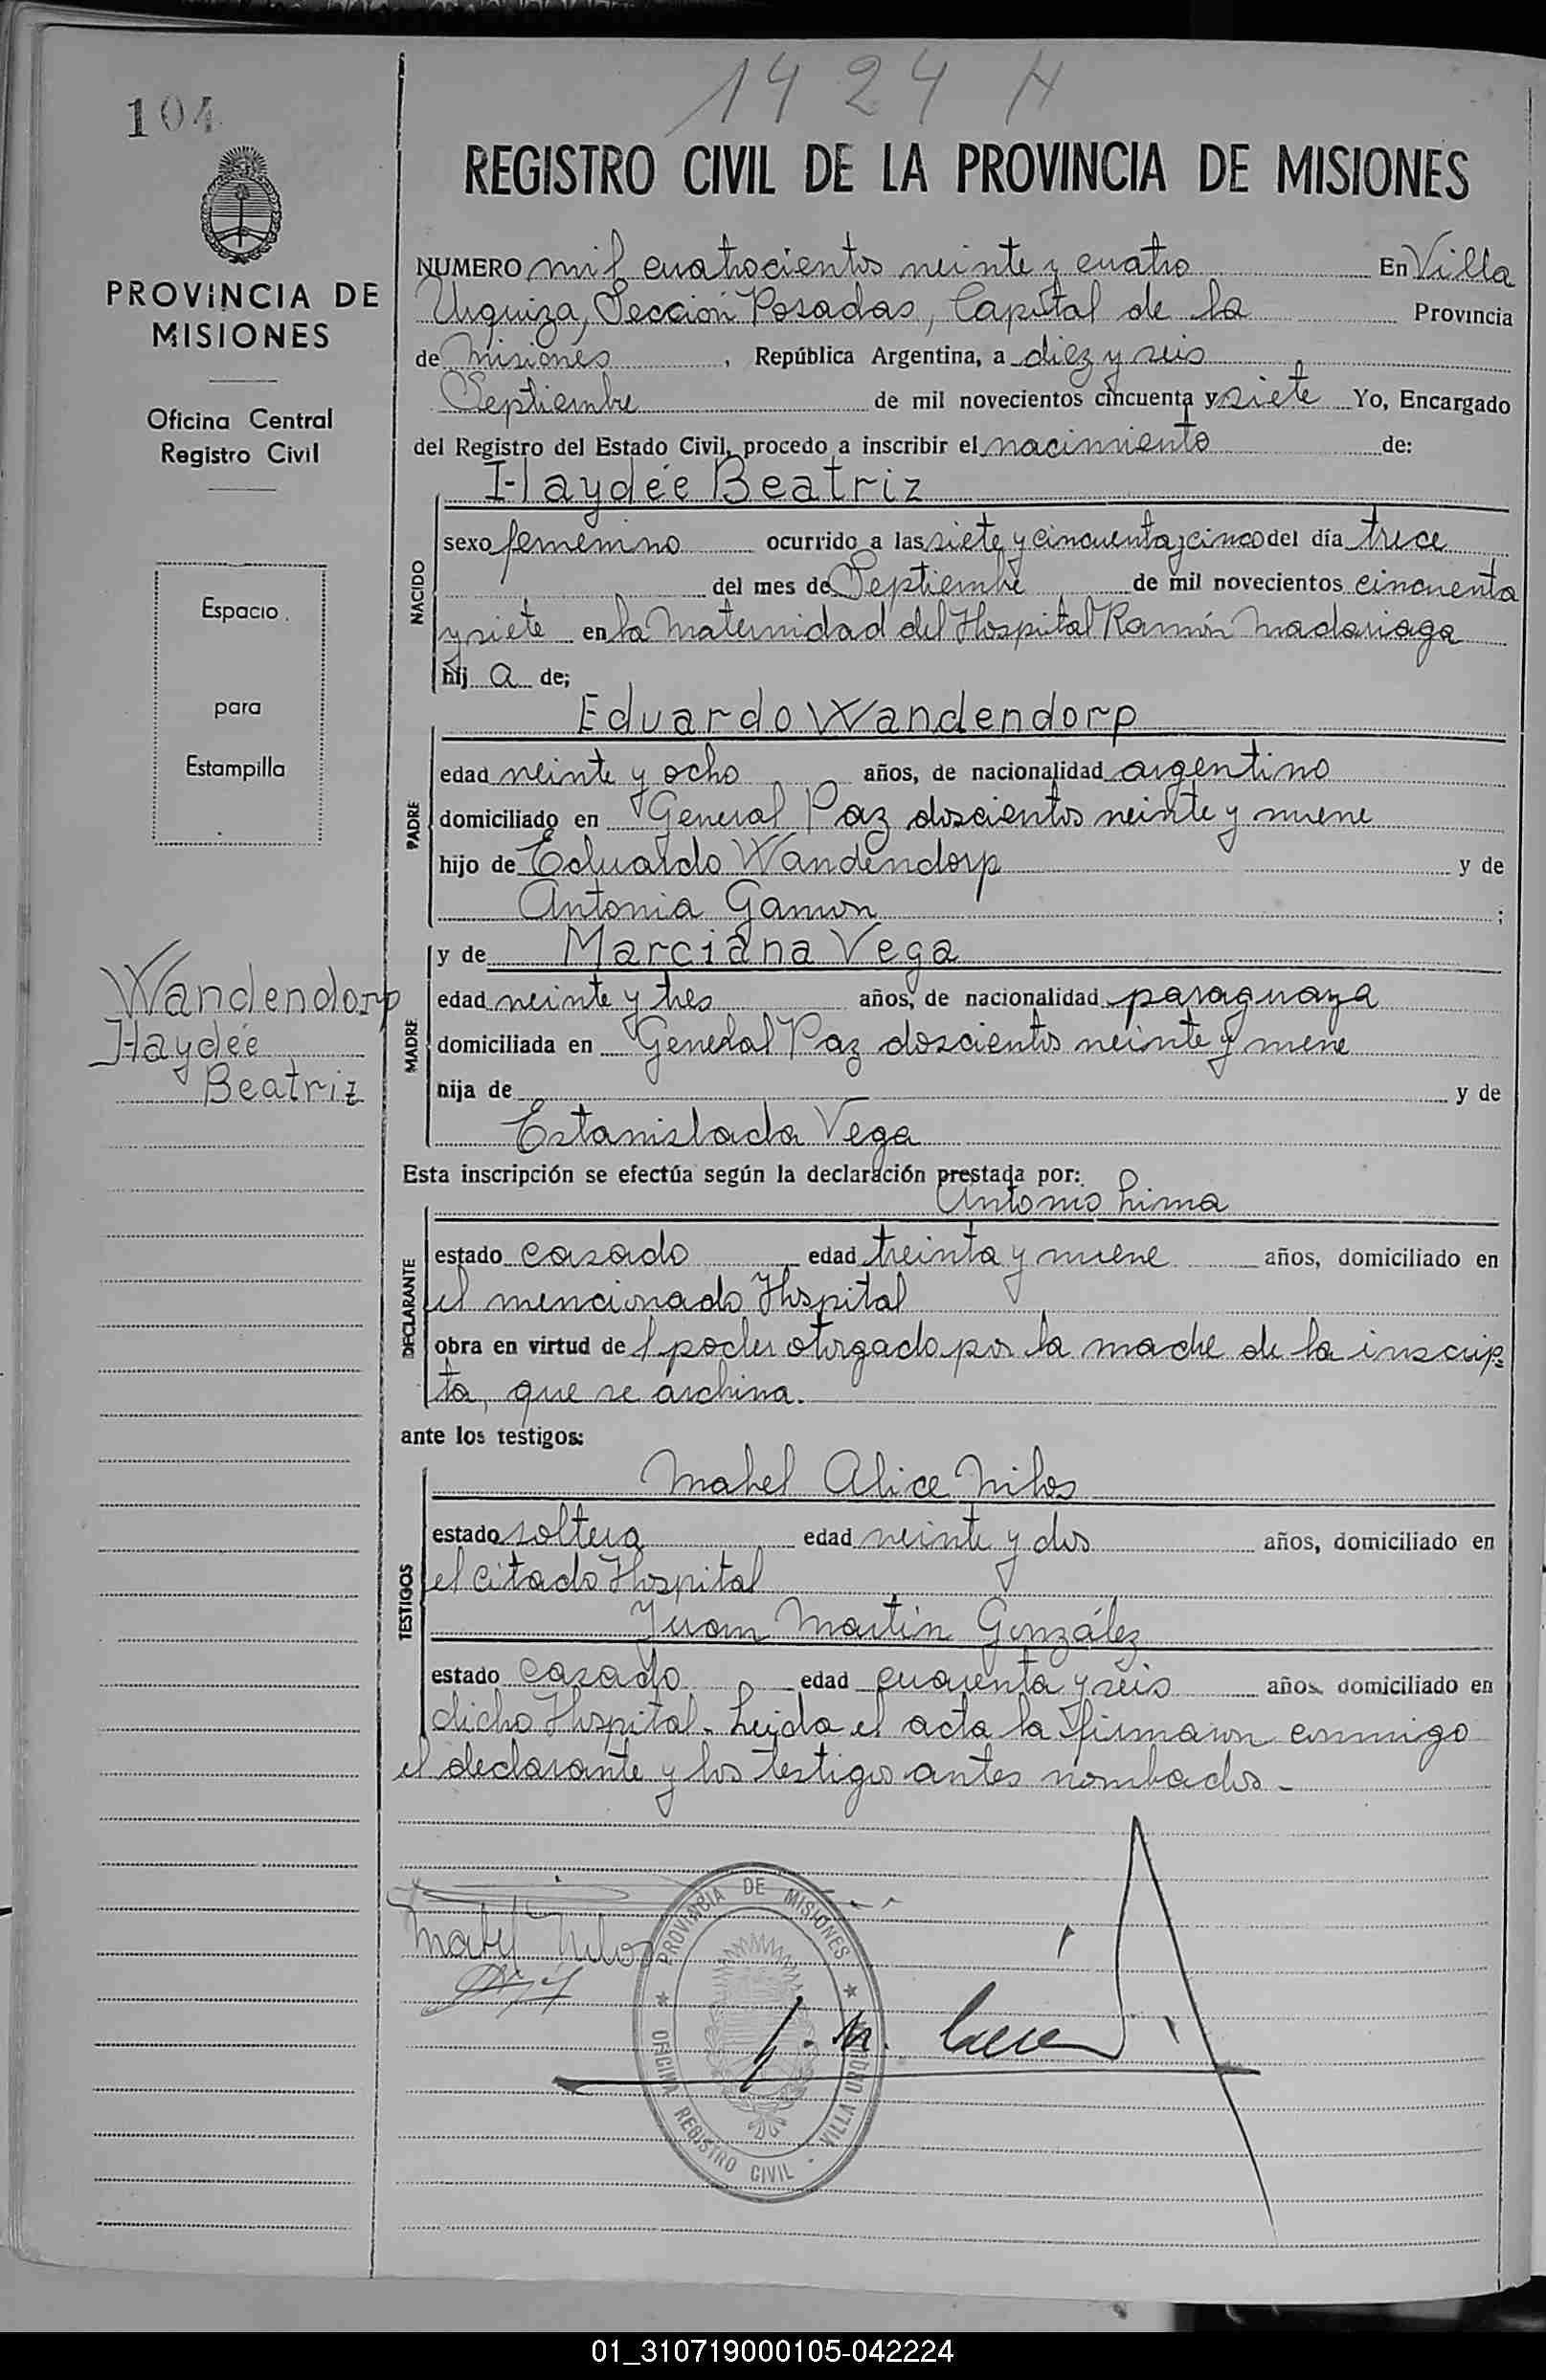 1424 N
104
REGISTRO CIVIL DE LA PROVINCIA DE MISIONES
PROVINCIA DE
MISIONES
Oficina Central
Registro Civil
Espacio
para
Estampilla
Wandendorp
Haydée
Beatriz
NUMERO mil cuatrocientos veinte y cuatro En Villa
Urquiza, Sección Posadas, Capital de la Provincia
de Misiones, República Argentina, a diez y seis
Septiembre de mil novecientos cincuenta y siete Yo, Encargado
del Registro del Estado Civil, procedo a inscribir el nacimiento de:
Haydée Beatriz
NACIDO
sexo femenino ocurrido a las siete y cincuenta y cinco del día trece
del mes de Septiembre de mil novecientos cincuenta
y siete en la Maternidad del Hospital Ramón Madariaga
hij a de;
Eduardo Wandendorp
PADRE
edad veinte y ocho años, de nacionalidad argentino
domiciliado en General Paz doscientos veinte y nueve
hijo de Eduardo Wandendorp y de
Antonia Gamon ;
y de Marciana Vega
MADRE
edad veinte y tres años, de nacionalidad paraguaya
domiciliada en General Paz doscientos veinte y nueve
hija de y de
Estanislada Vega
Esta inscripción se efectúa según la declaración prestada por:
Antonio Lima
DECLARANTE
estado casado edad treinta y nueve años, domiciliado en
el mencionado Hospital
obra en virtud de 1 poder otorgado por la madre de la inscrip-
ta, que se archiva.
ante los testigos:
Mabel Alice Nilos
TESTIGOS
estado soltera edad veinte y dos años, domiciliado en
el citado Hospital
Juan Martín González
estado casado edad cuarenta y seis años domiciliado en
dicho Hospital. Leida el acta la firmaron conmigo
el declarante y los testigos antes nombados.-
Mabel Nilos
PROVINCIA DE MISIONES
OFICINA REGISTRO CIVIL - VILLA URQU
01_310719000105-042224